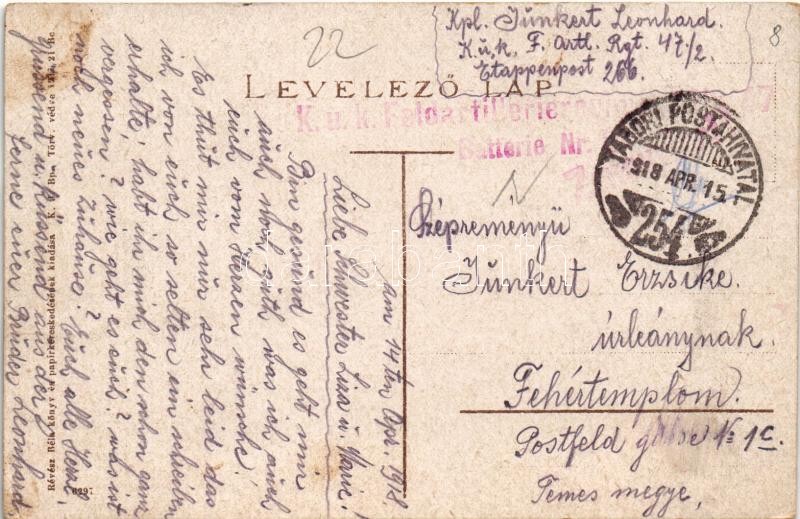 22
8
Kpl. Junkert Leonhard.
K.u.k. F. Artl. Rgt. 47/2
Etappenpost 266.
LEVELEZŐ LAP
K. u. k. Feldartillerieregiment 47
Batterie Nr.
TÁBORI POSTAHIVATAL
918 APR. 15.
254
Szépreményü
Junkert Erzsike
úrleánynak.
Fehértemplom.
Postfeld gasse № 1c.
Temes megye,
am 14ten Apr. 1918.
Liebe Schwester Lisa u. Marie!
Bin gesund es geht mir
auch noch gut was ich auch
euch vom Herzen wünsche!
Es thut mir nur sehr leid das
ich von euch so selten ein schreiben
erhalte, habt ihr mich den schon ganz
vergessen? wie geht es euch? was ist
noch neues zuhause? Euch alle Herzl,
grüssend u. küssend aus der
Ferne euer Bruder Leonhard
Révész Béla könyv és papirkereskedésének kiadása
6297